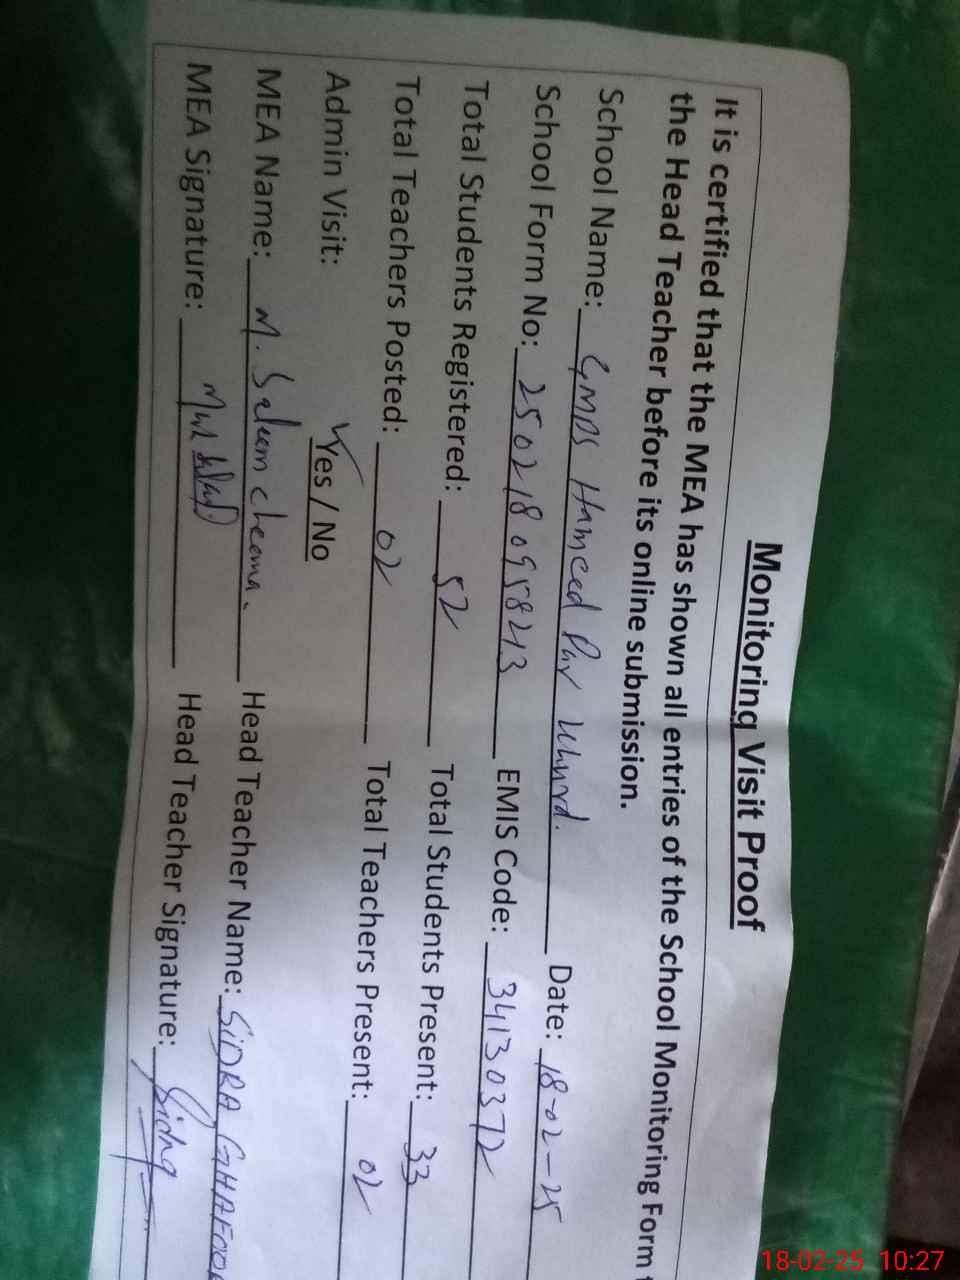 Monitoring Visit Proof
It is certified that the MEA has shown all entries of the School Monitoring Form t
the Head Teacher before its online submission.
School Name: GMPS Hameed Pur Date: 18-02-25
School Form No: 2502180958213 EMIS Code: 34130372
Total Students Registered: 52 Total Students Present: 33
Total Teachers Posted: 02 Total Teachers Present: 02
Admin Visit: Yes / No
MEA Name: M. Saleem cheema. Head Teacher Name: SiDRA GHAFOO
MEA Signature: Head Teacher Signature: Sidra
18-02-25 10:27